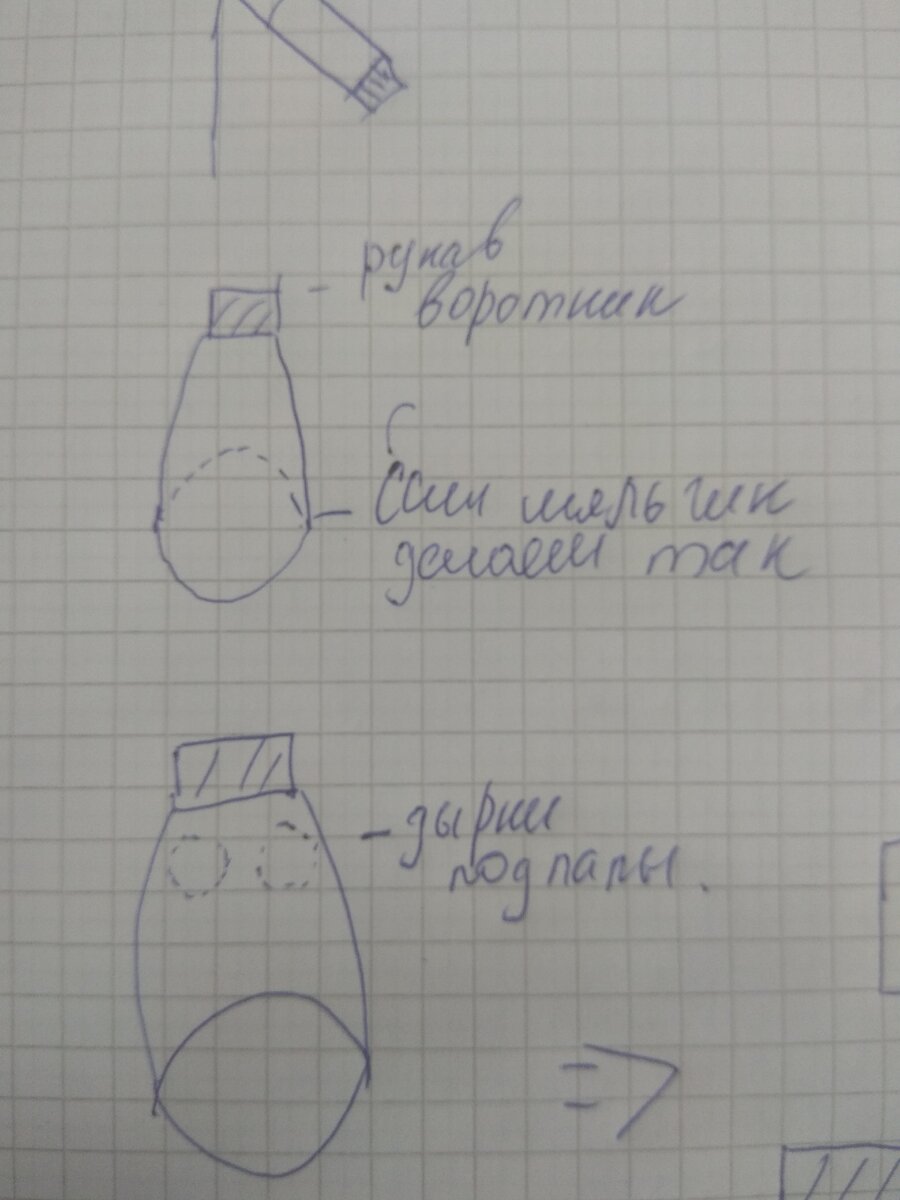 - рукав
воротник
- Если мальчик
делаем так
- дырки
под лапы.
=>